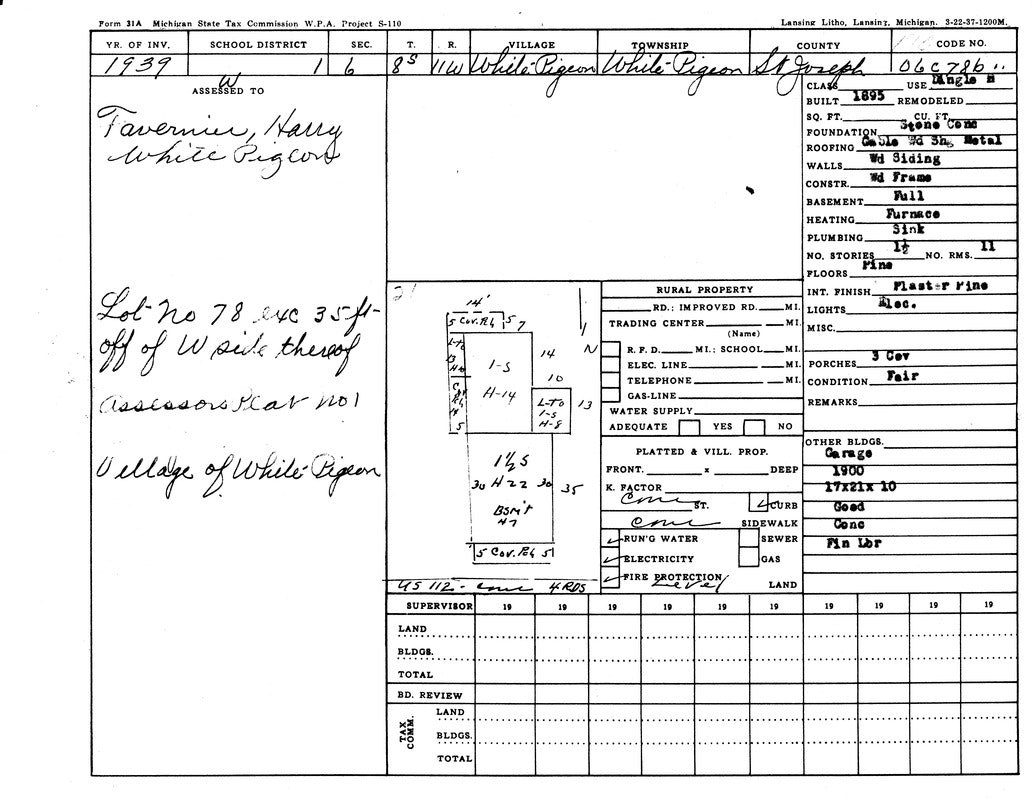 Form 31A Michigan State Tax Commission W.P.A. Project S-110
Lansing Litho, Lansing, Michigan. 3-22-37-1200M.
YR. OF INV. SCHOOL DISTRICT SEC. T. R. VILLAGE TOWNSHIP COUNTY CODE NO.
1939 W 1 6 8S 11W White Pigeon White Pigeon St Joseph 06C78b
ASSESSED TO
Tavernier, Harry
White Pigeon
Lot No 78 exc 35 ft
off of W side thereof
Assessors Plat No 1
Village of White Pigeon
CLASS USE Dingle H
BUILT 1895 REMODELED
SQ. FT. CU. FT.
FOUNDATION Stone Conc
ROOFING Gable Wd Shg Metal
WALLS Wd Siding
CONSTR. Wd Frame
BASEMENT Full
HEATING Furnace
PLUMBING Sink
NO. STORIES 1½ NO. RMS. 11
FLOORS Pine
INT. FINISH Plaster Pine
LIGHTS Elec.
MISC.
PORCHES 3 Cov
CONDITION Fair
REMARKS
OTHER BLDGS.
Garage
1900
17x21x 10
Good
Conc
Fin Lbr
21
14'
5 Cov. Pch 5
7
1
N
L-To
13
H-10
1-S
H-14
14
10
L-To
1-S
H-8
13
5
1½ S
30 H 22 30
35
BSM'T
H7
5 Cov. Pch 5
US 112 - conc 4 RDS
RURAL PROPERTY
RD.; IMPROVED RD. MI.
TRADING CENTER MI.
(Name)
R. F. D. MI.; SCHOOL MI.
ELEC. LINE MI.
TELEPHONE MI.
GAS-LINE
WATER SUPPLY
ADEQUATE YES NO
PLATTED & VILL. PROP.
FRONT. x DEEP
K. FACTOR
Conc ST. CURB
Conc SIDEWALK
RUN'G WATER SEWER
ELECTRICITY GAS
FIRE PROTECTION
Level LAND
SUPERVISOR 19 19 19 19 19 19 19 19 19
LAND
BLDGS.
TOTAL
BD. REVIEW
TAX COMM.
LAND
BLDGS.
TOTAL